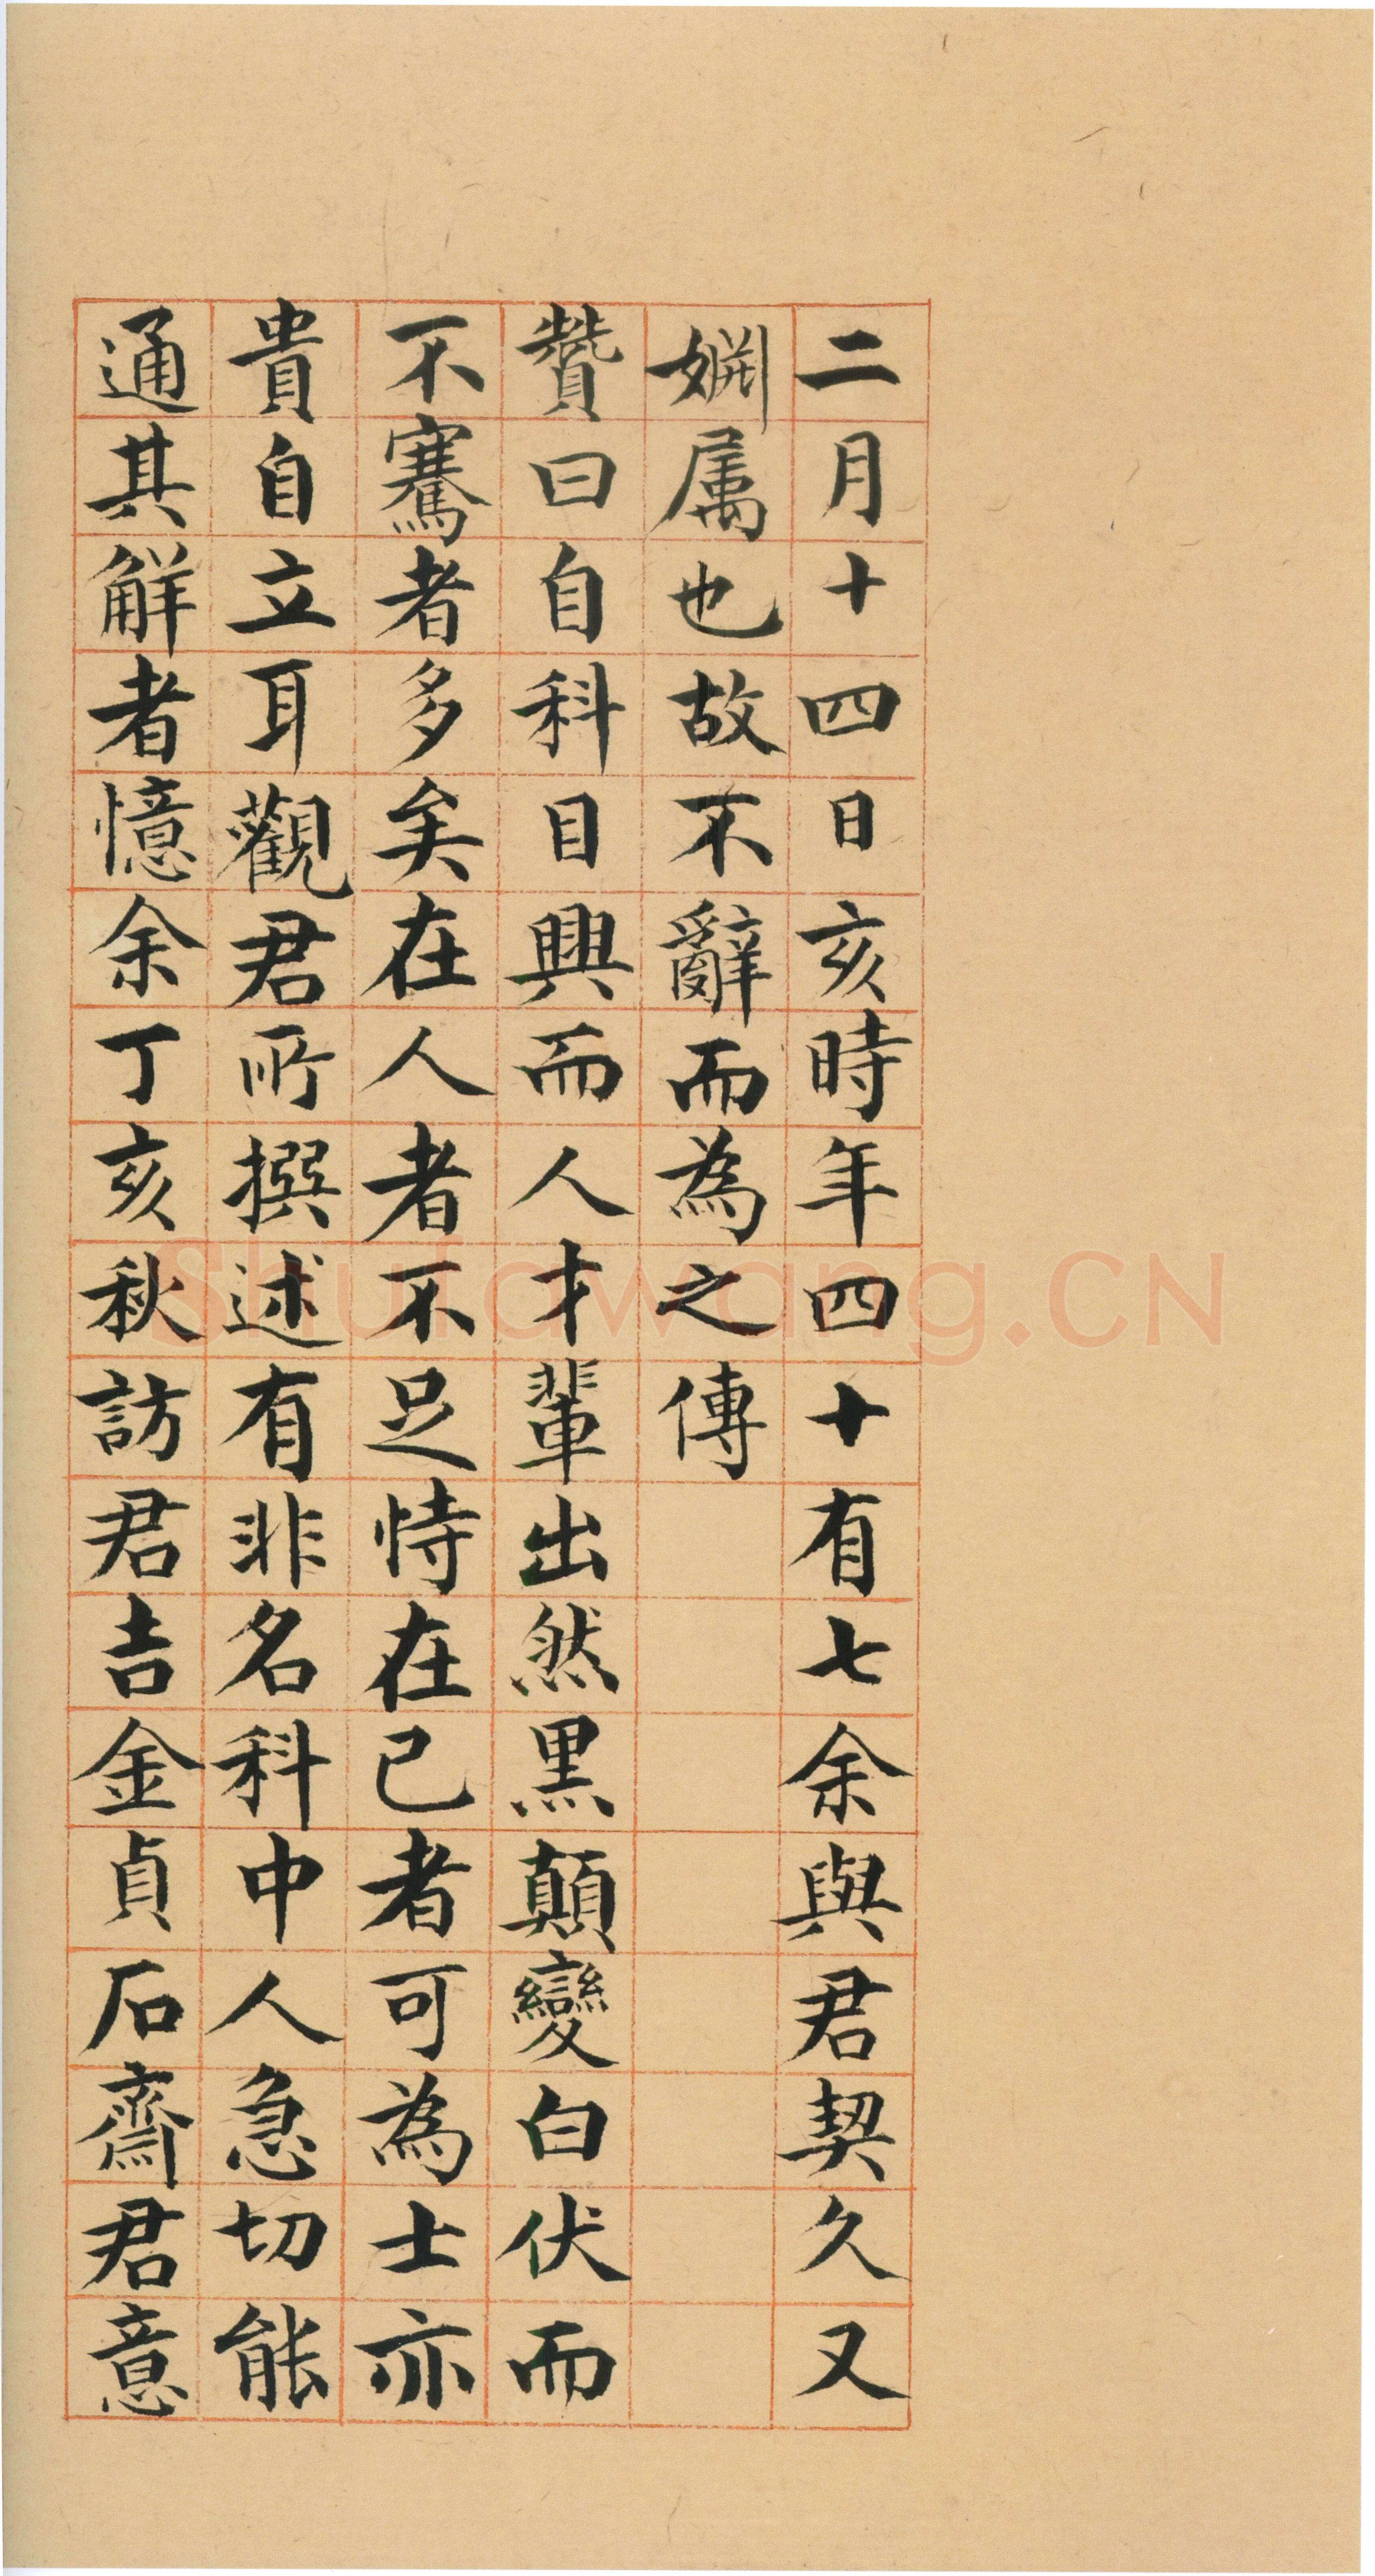 二月十四日亥時年四十有七余與君契久又
姻属也故不辭而為之傳
贊曰自科目興而人才輩出然黑顛變白伏而
不騫者多矣在人者不足恃在己者可為士亦
貴自立耳觀君所撰述有非名科中人急切能
通其解者憶余丁亥秋訪君吉金貞石齋君意
Shufawang.CN